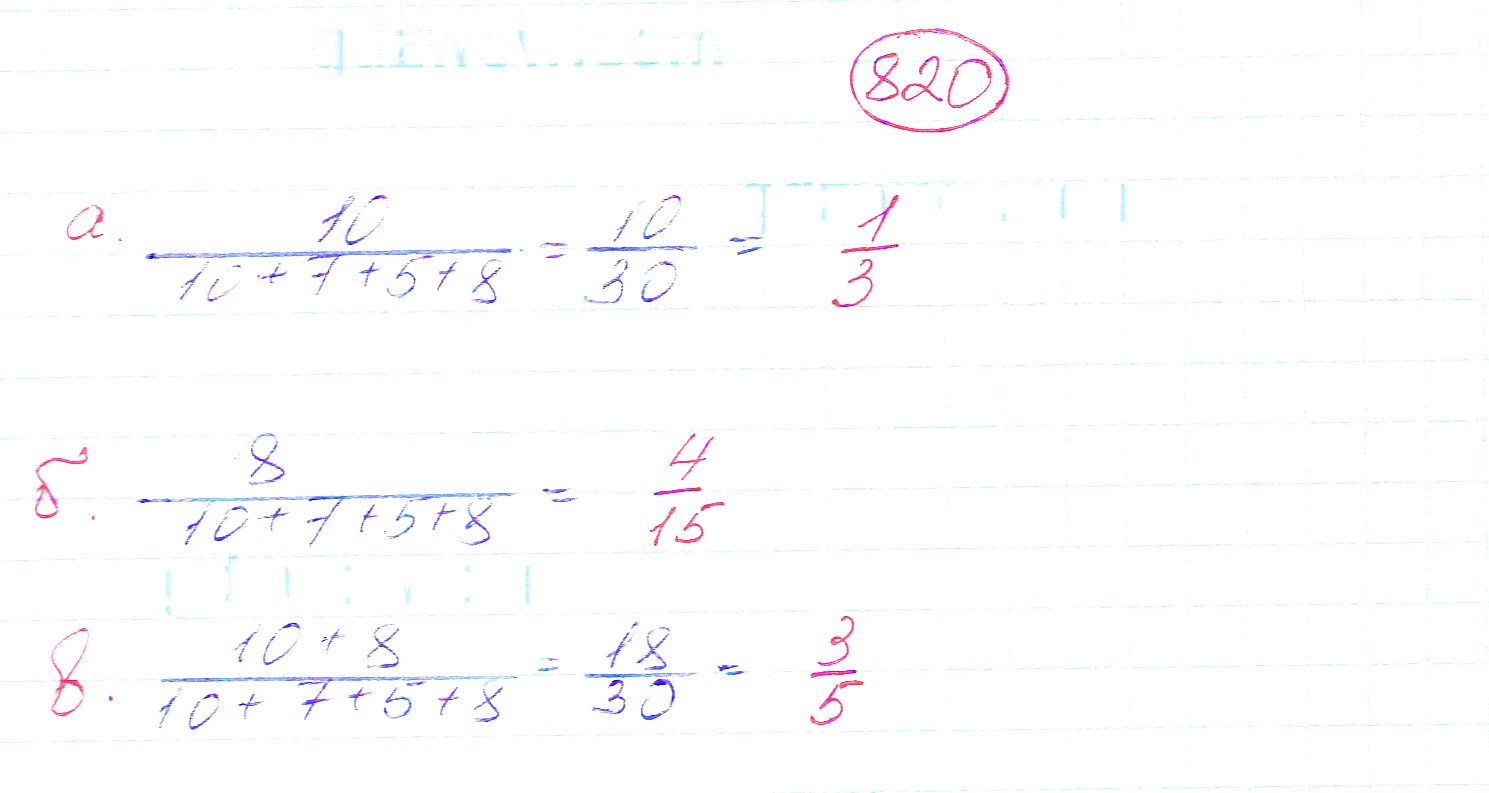 820
а. 10/(10+7+5+8) = 10/30 = 1/3
б. 8/(10+7+5+8) = 4/15
в. (10+8)/(10+7+5+8) = 18/30 = 3/5